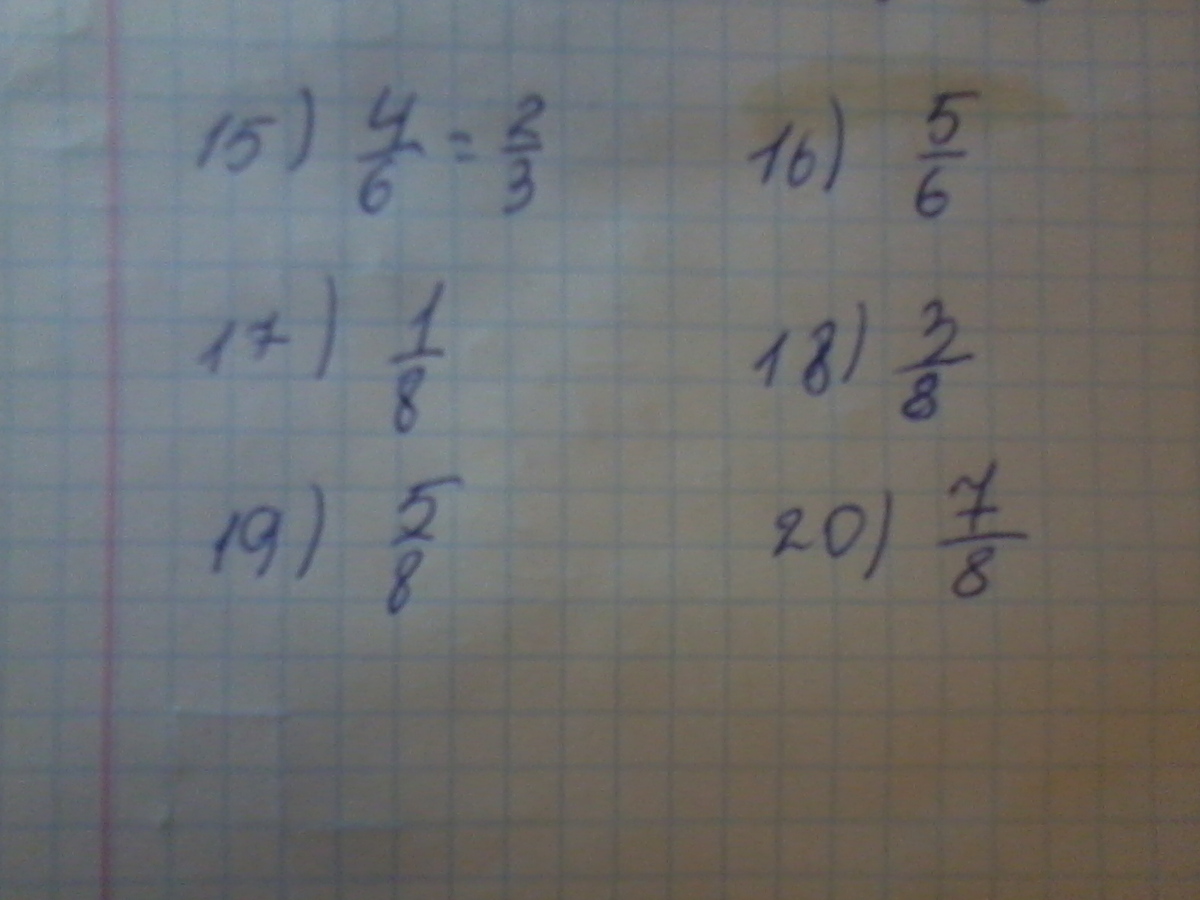 15) 4/6 = 2/3 16) 5/6
17) 1/8 18) 3/8
19) 5/8 20) 7/8